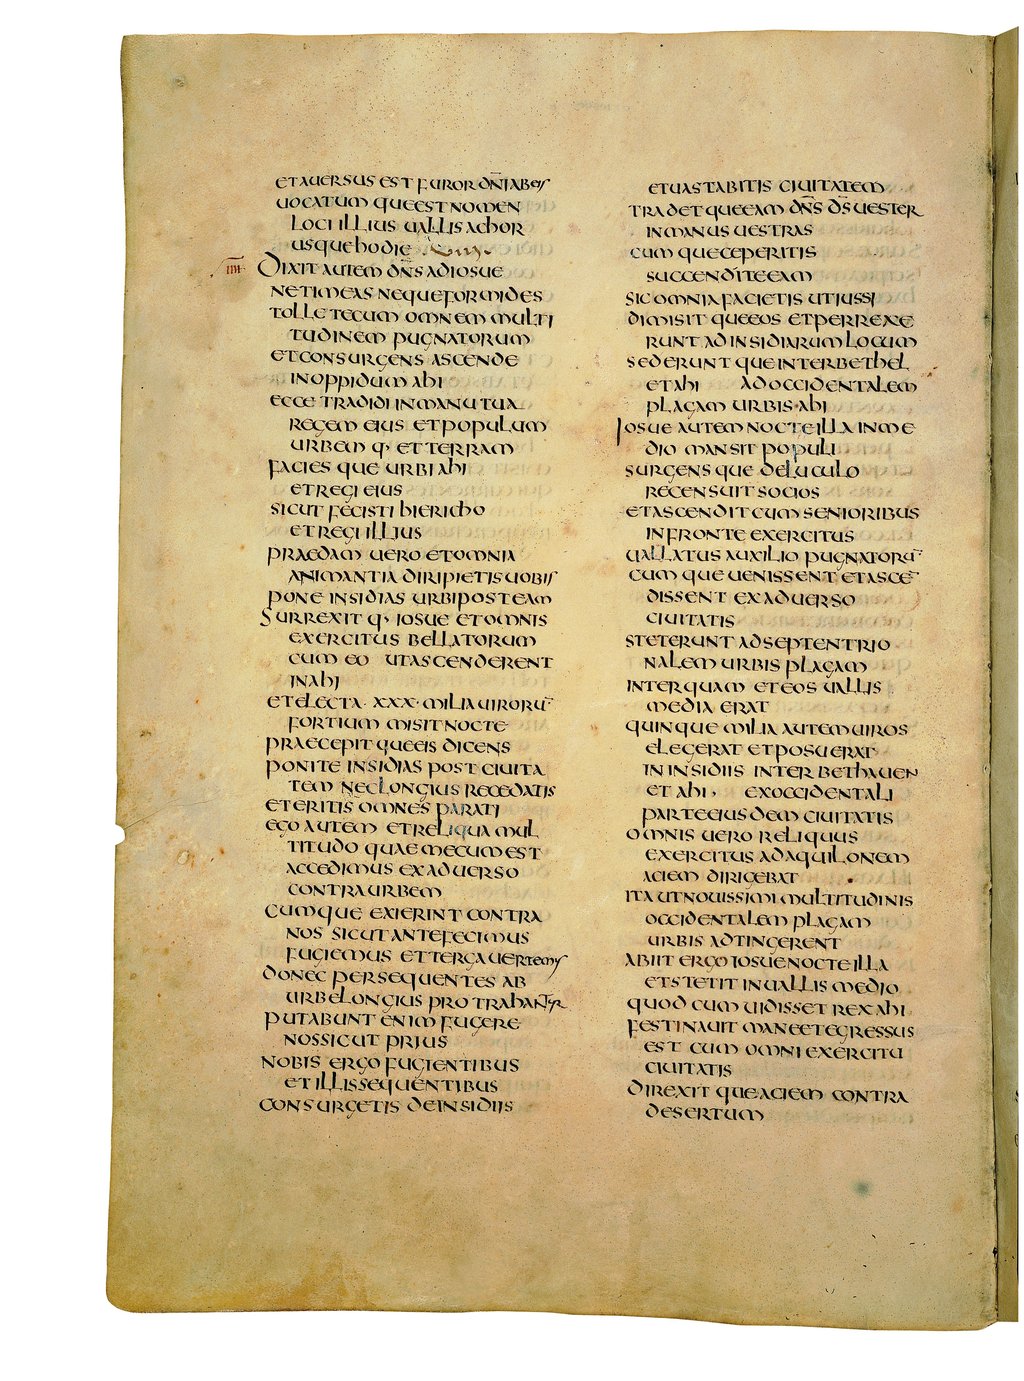 ET AUERSUS EST FUROR DN̄I AB EIS
UOCATUM QUE EST NOMEN
LOCI ILLIUS UALLIS ACHOR
USQUE HODIE
IIII DIXIT AUTEM DN̄S AD IOSUE
NE TIMEAS NEQUE FORMIDES
TOLLE TECUM OMNEM MULTI
TUDINEM PUGNATORUM
ET CONSURGENS ASCENDE
IN OPPIDUM AHI
ECCE TRADIDI IN MANU TUA
REGEM EIUS ET POPULUM
URBEM Q· ET TERRAM
FACIES QUE URBI AHI
ET REGI EIUS
SICUT FECISTI HIERICHO
ET REGI ILLIUS
PRAEDAM UERO ET OMNIA
ANIMANTIA DIRIPIETIS UOBIS
PONE INSIDIAS URBI POST EAM
SURREXIT Q· IOSUE ET OMNIS
EXERCITUS BELLATORUM
CUM EO UT ASCENDERENT
IN AHI
ET ELECTA · XXX · MILIA UIRORŪ
FORTIUM MISIT NOCTE
PRAECEPIT QUE EIS DICENS
PONITE INSIDIAS POST CIUITA
TEM NEC LONGIUS RECEDATIS
ET ERITIS OMNES PARATI
EGO AUTEM ET RELIQUA MUL
TITUDO QUAE MECUM EST
ACCEDIMUS EX ADUERSO
CONTRA URBEM
CUMQUE EXIERINT CONTRA
NOS SICUT ANTE FECIMUS
FUGIEMUS ET TERGA UERTEMUS
DONEC PERSEQUENTES AB
URBE LONGIUS PROTRAHANTUR
PUTABUNT ENIM FUGERE
NOS SICUT PRIUS
NOBIS ERGO FUGIENTIBUS
ET ILLIS SEQUENTIBUS
CONSURGETIS DE INSIDIIS
ET UASTABITIS CIUITATEM
TRADET QUE EAM DN̄S DS̄ UESTER
IN MANUS UESTRAS
CUM QUE CEPERITIS
SUCCENDITE EAM
SIC OMNIA FACIETIS UT IUSSI
DIMISIT QUE EOS ET PERREXE
RUNT AD INSIDIARUM LOCUM
SEDERUNT QUE INTER BETHEL
ET AHI AD OCCIDENTALEM
PLAGAM URBIS AHI
IOSUE AUTEM NOCTE ILLA IN ME
DIO MANSIT POPULI
SURGENS QUE DELUCULO
RECENSUIT SOCIOS
ET ASCENDIT CUM SENIORIBUS
IN FRONTE EXERCITUS
UALLATUS AUXILIO PUGNATORŪ
CUM QUE UENISSENT ET ASCE¯
DISSENT EX ADUERSO
CIUITATIS
STETERUNT AD SEPTENTRIO
NALEM URBIS PLAGAM
INTER QUAM ET EOS UALLIS
MEDIA ERAT
QUINQUE MILIA AUTEM UIROS
ELEGERAT ET POSUERAT
IN INSIDIIS INTER BETHAUEN
ET AHI · EX OCCIDENTALI
PARTE EIUSDEM CIUITATIS
OMNIS UERO RELIQUUS
EXERCITUS AD AQUILONEM
ACIEM DIRIGEBAT
ITA UT NOUISSIMI MULTITUDINIS
OCCIDENTALEM PLAGAM
URBIS ADTINGERENT
ABIIT ERGO IOSUE NOCTE ILLA
ET STETIT IN UALLIS MEDIO
QUOD CUM UIDISSET REX AHI
FESTINAUIT MANE ET EGRESSUS
EST CUM OMNI EXERCITU
CIUITATIS
DIREXIT QUE ACIEM CONTRA
DESERTUM